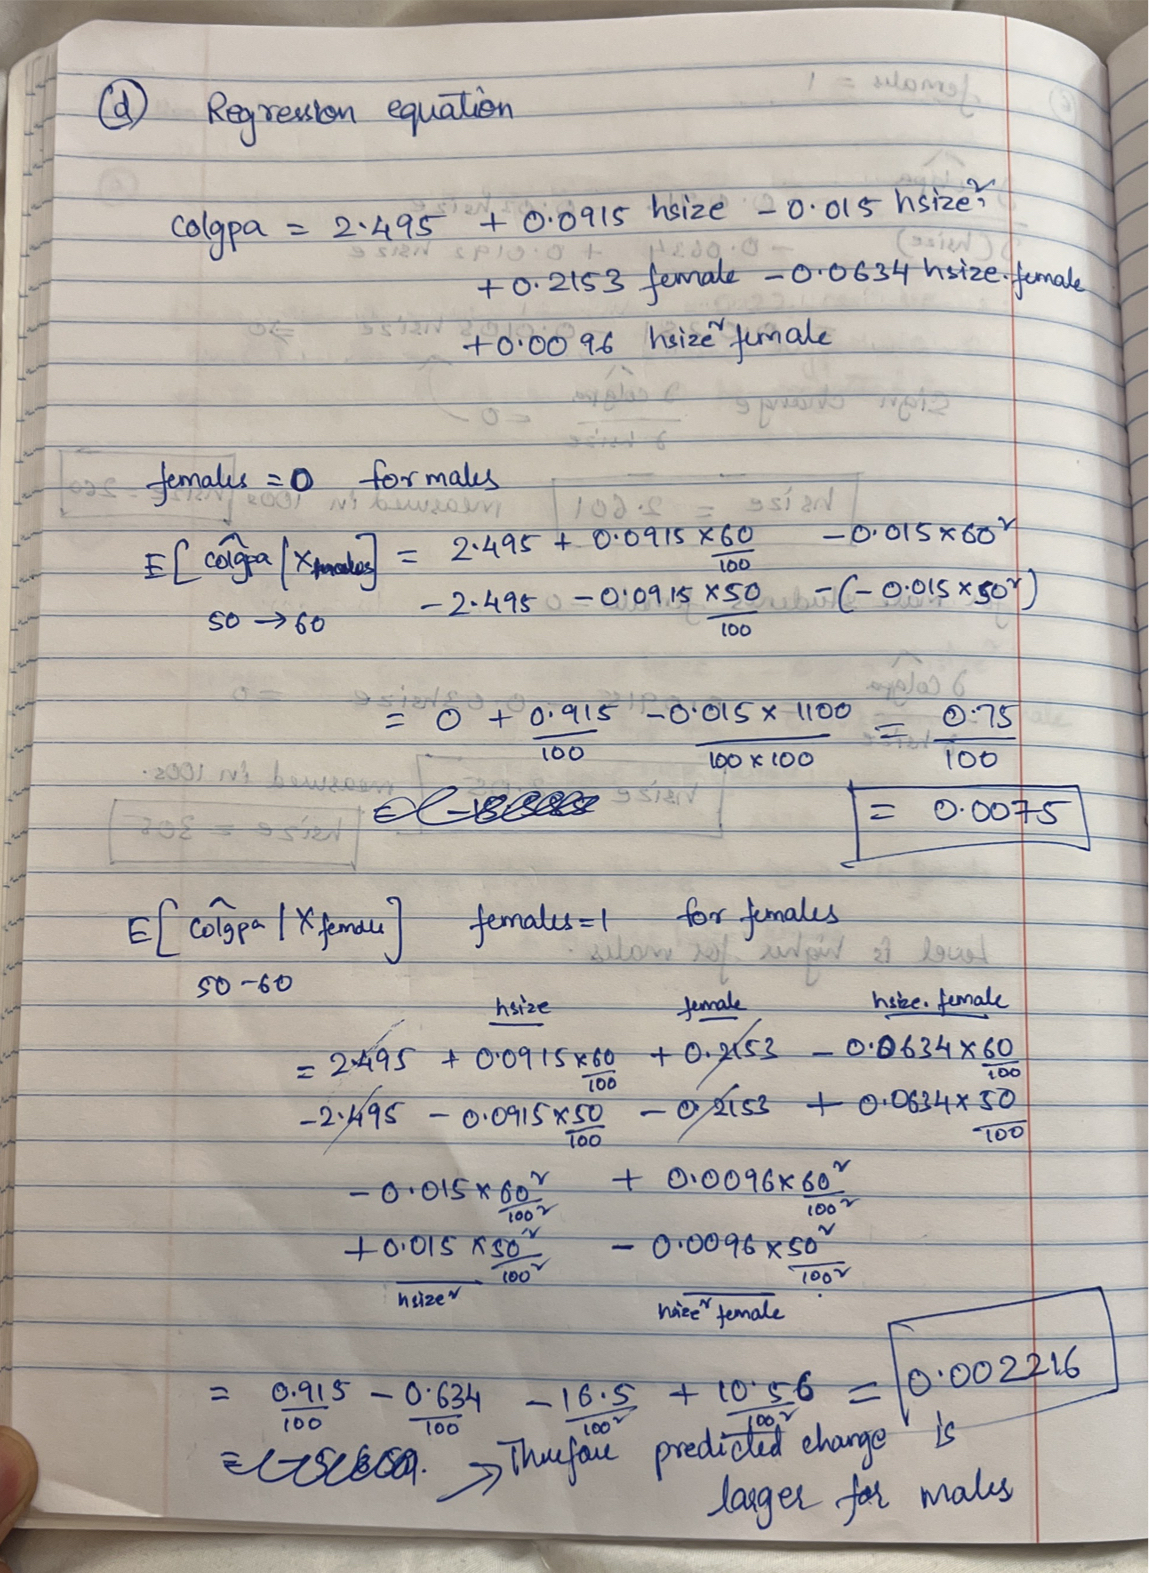 (d) Regression equation
colgpa = 2.495 + 0.0915 hsize - 0.015 hsize²
+ 0.2153 female - 0.0634 hsize.female
+0.0096 hsize² female
females = 0 for males
E[ colgpâ | X males ] = 2.495 + 0.0915 × 60/100 - 0.015 × 60²
50 → 60 - 2.495 - 0.0915 × 50/100 - (- 0.015 × 50²)
= 0 + 0.915/100 - 0.015 × 1100/100 × 100 = 0.75/100
= 0.0075
E[ colgpâ | X female ] females = 1 for females
50 - 60
hsize female hsize.female
= 2.495 + 0.0915 × 60/100 + 0.2153 - 0.0634 × 60/100
- 2.495 - 0.0915 × 50/100 - 0.2153 + 0.0634 × 50/100
- 0.015 × 60²/100² + 0.0096 × 60²/100²
+ 0.015 × 50²/100² - 0.0096 × 50²/100²
hsize² hsize² female
= 0.915/100 - 0.634/100 - 16.5/100² + 10.56/100² = 0.002216
→ Therefore predicted change is
larger for males